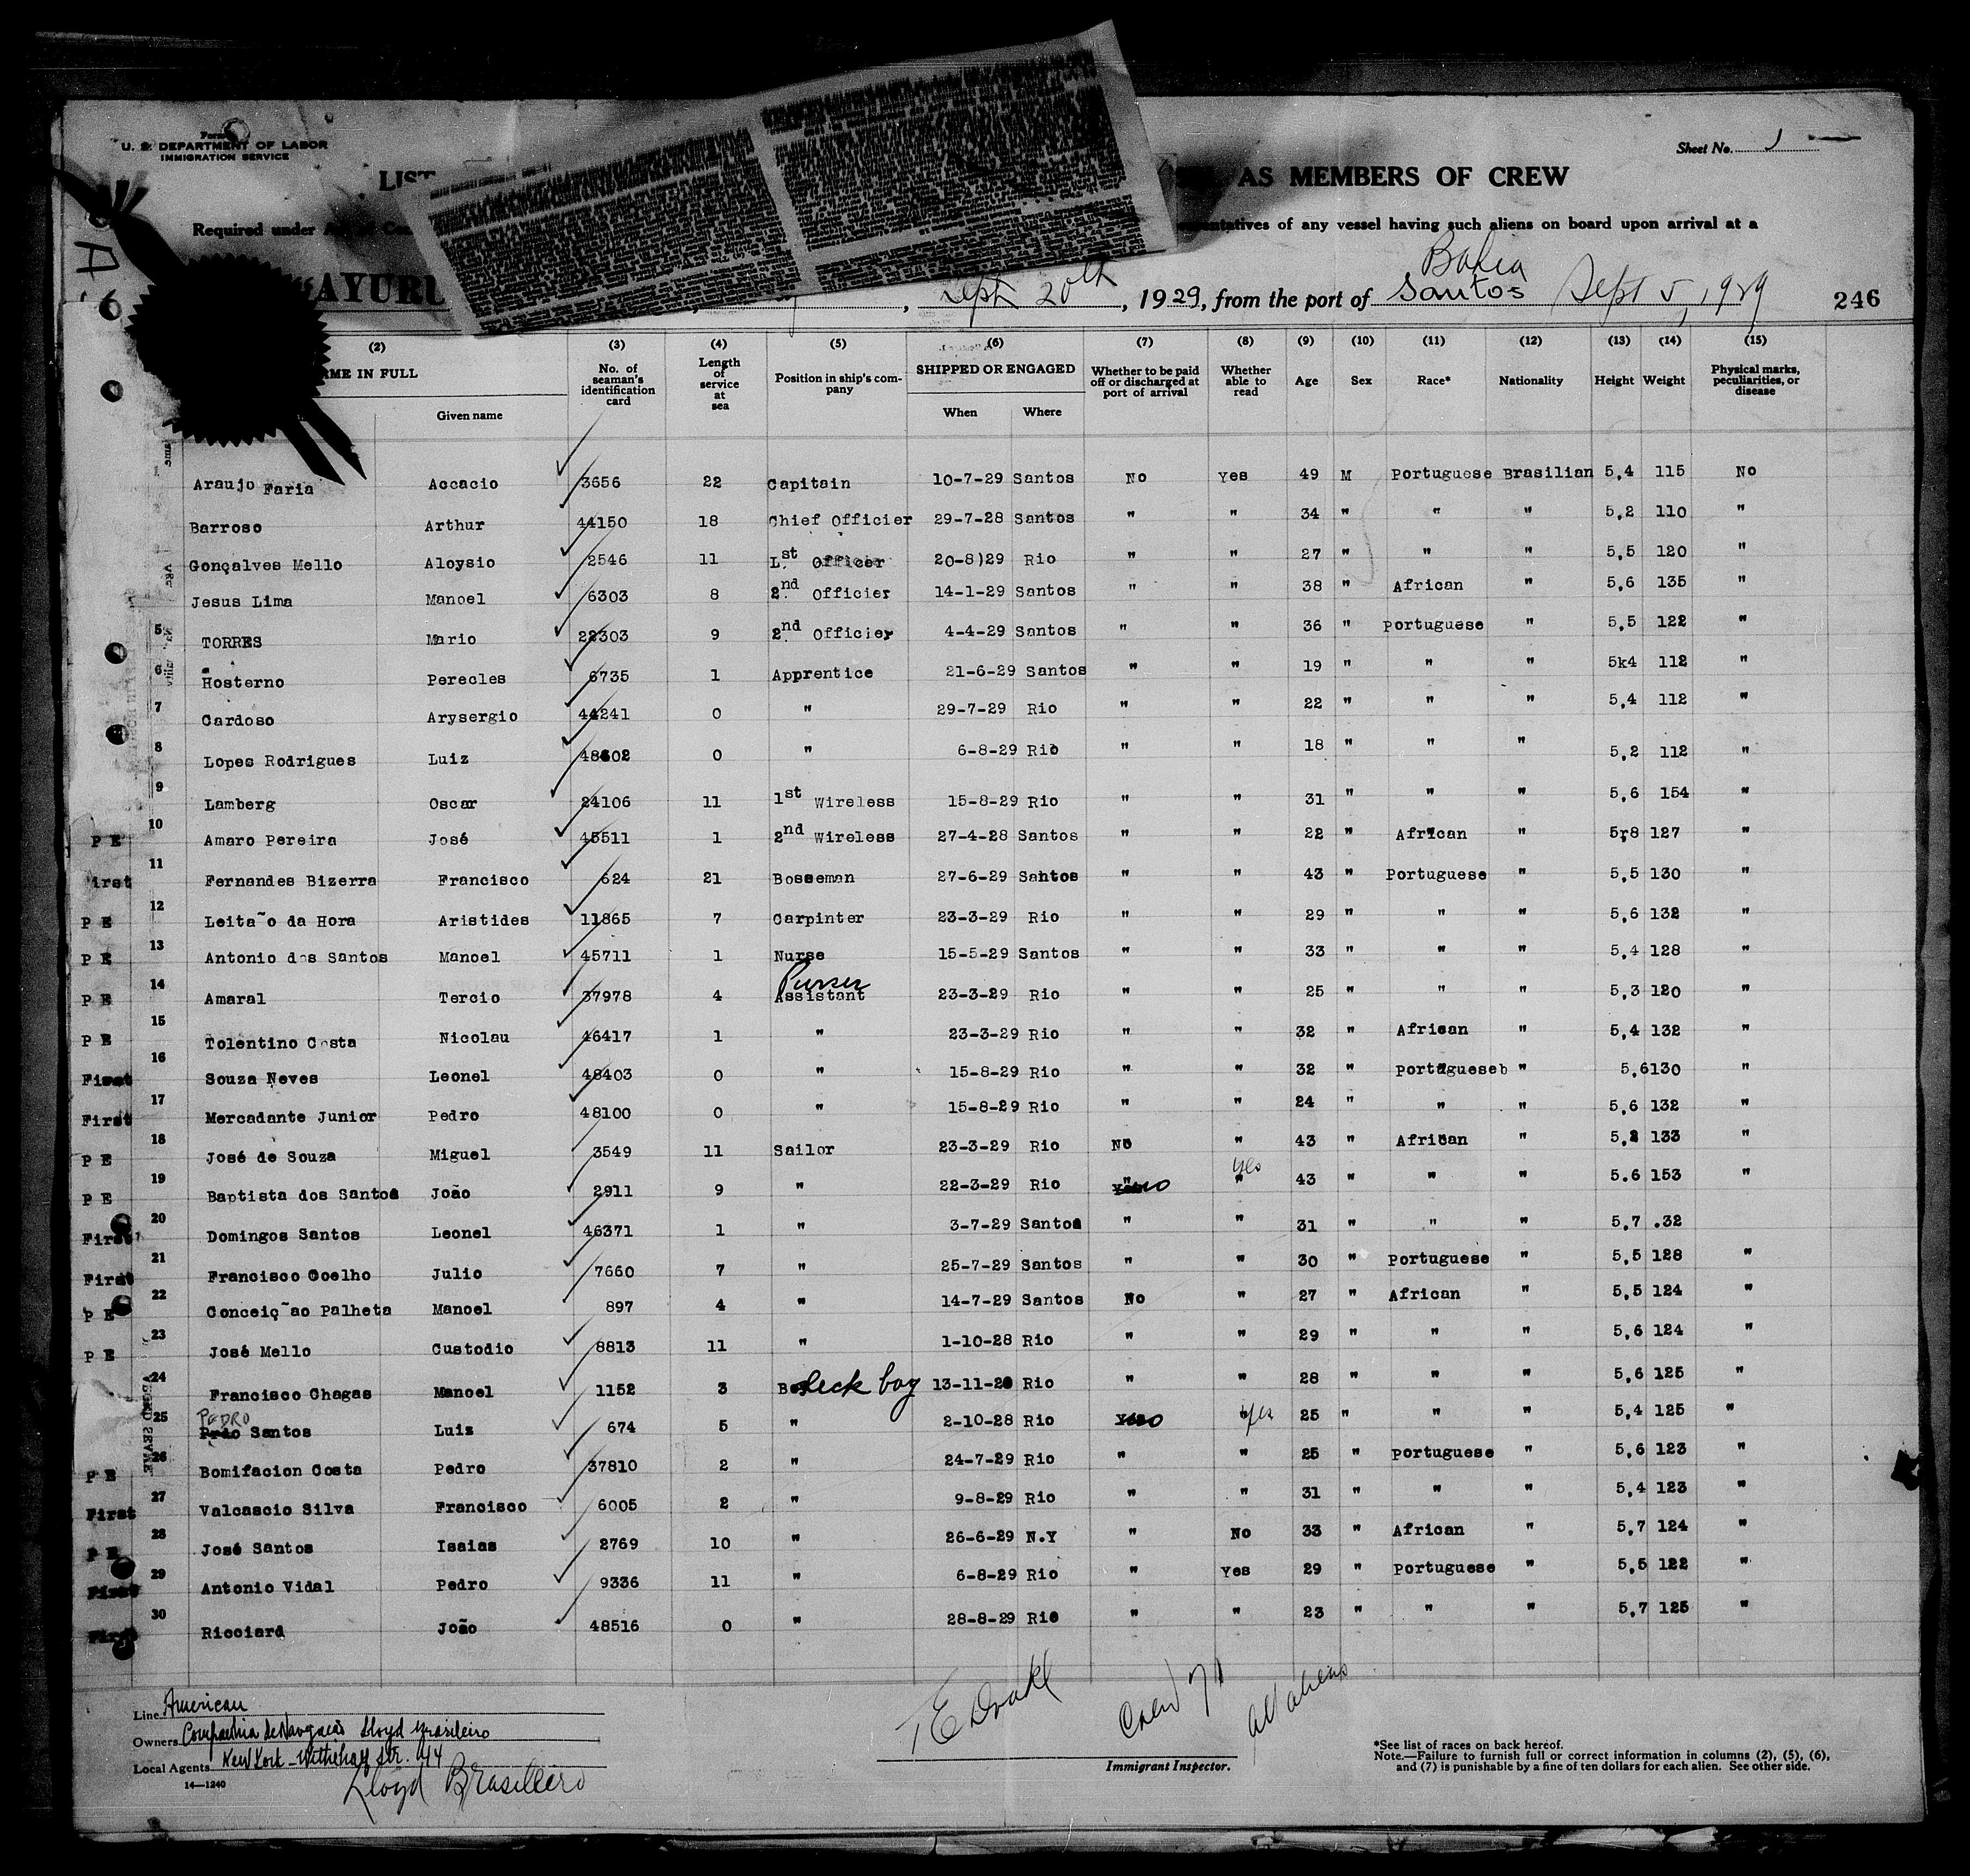 Form
U. S. DEPARTMENT OF LABOR
IMMIGRATION SERVICE
Sheet No. 1
LIST AS MEMBERS OF CREW
Required under of any vessel having such aliens on board upon arrival at a
Bahia
"AYURU , Sept 20th, 1929, from the port of Santos Sept 5, 1929 246
(2) (3) (4) (5) (6) (7) (8) (9) (10) (11) (12) (13) (14) (15)
IN FULL No. of seaman's identification card Length of service at sea Position in ship's company SHIPPED OR ENGAGED Whether to be paid off or discharged at port of arrival Whether able to read Age Sex Race* Nationality Height Weight Physical marks, peculiarities, or disease
Given name When Where
Araujo Faria Accacio 3656 22 Capitain 10-7-29 Santos No Yes 49 M Portuguese Brasilian 5,4 115 No
Barroso Arthur 44150 18 Chief Officier 29-7-28 Santos " " 34 " " " 5,2 110 "
Gonçalves Mello Aloysio 2546 11 L.st Officer 20-8)29 Rio " " 27 " " " 5,5 120 "
Jesus Lima Manoel 6303 8 2nd Officier 14-1-29 Santos " " 38 " African " 5,6 135 "
5 TORRES Mario 22303 9 2nd Officier 4-4-29 Santos " " 36 " Portuguese " 5,5 122 "
6 Hosterno Perecles 6735 1 Apprentice 21-6-29 Santos " " 19 " " " 5k4 112 "
7 Cardoso Arysergio 44241 0 " 29-7-29 Rio " " 22 " " " 5,4 112 "
8 Lopes Rodrigues Luiz 48602 0 " 6-8-29 Rio " " 18 " " " 5,2 112 "
9 Lamberg Oscar 24106 11 1st Wireless 15-8-29 Rio " " 31 " " " 5,6 154 "
P E 10 Amaro Pereira José 45511 1 2nd Wireless 27-4-28 Santos " " 22 " African " 5r8 127 "
First 11 Fernandes Bizerra Francisco 624 21 Bosseman 27-6-29 Santos " " 43 " Portuguese " 5,5 130 "
P E 12 Leita~o da Hora Aristides 11865 7 Carpinter 23-3-29 Rio " " 29 " " " 5,6 132 "
P E 13 Antonio dos Santos Manoel 45711 1 Nurse 15-5-29 Santos " " 33 " " " 5,4 128 "
Purser
P E 14 Amaral Tercio 37978 4 Assistant 23-3-29 Rio " " 25 " " " 5,3 120 "
P E 15 Tolentino Costa Nicolau 46417 1 " 23-3-29 Rio " " 32 " African " 5,4 132 "
First 16 Souza Neves Leonel 48403 0 " 15-8-29 Rio " " 32 " Portugueseb " 5,6130 "
First 17 Mercadante Junior Pedro 48100 0 " 15-8-29 Rio " " 24 " " " 5,6 132 "
P E 18 José de Souza Miguel 3549 11 Sailor 23-3-29 Rio No " 43 " African " 5,2 133 "
P E 19 Baptista dos Santos João 2911 9 " 22-3-29 Rio No yes 43 " " " 5.6 153 "
First 20 Domingos Santos Leonel 46371 1 " 3-7-29 Santos " " 31 " " " 5,7 .32
First 21 Francisco Coelho Julio 7660 7 " 25-7-29 Santos " " 30 " Portuguese " 5,5 128 "
P E 22 Conceiç~ao Palheta Manoel 897 4 " 14-7-29 Santos No " 27 " African " 5,5 124 "
P E 23 José Mello Custodio 8813 11 " 1-10-28 Rio " " 29 " " " 5,6 124 "
24 Francisco Chagas Manoel 1152 3 deck boy 13-11-28 Rio " " 28 " " " 5,6 125 "
PEDRO
25 Santos Luis 674 5 " 2-10-28 Rio No yes 25 " " " 5,4 125 "
P E 26 Bomifacion Costa Pedro 37810 2 " 24-7-29 Rio " " 25 " Portuguese " 5,6 123 "
First 27 Valcascio Silva Francisco 6005 2 " 9-8-29 Rio " " 31 " " " 5,4 123 "
P E 28 José Santos Isaias 2769 10 " 26-6-29 N.Y " No 33 " African " 5,7 124 "
First 29 Antonio Vidal Pedro 9336 11 " 6-8-29 Rio " Yes 29 " Portuguese " 5,5 122 "
First 30 Ricciard João 48516 0 " 28-8-29 Rio " " 23 " " " 5,7 125 "
Line American
Owners Companhia de Navegacão Lloyd Brasileiro
Local Agents New York - Str. 44
14—1240
Lloyd Brasileiro
T E Drake
Immigrant Inspector.
Crew 71
all aliens
*See list of races on back hereof.
Note.—Failure to furnish full or correct information in columns (2), (5), (6),
and (7) is punishable by a fine of ten dollars for each alien. See other side.